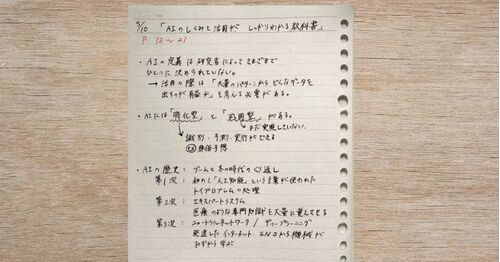 5/10 「AIのしくみと活用が しっかりわかる教科書」
P 12〜21
・AIの定義は研究者によってさまざまで
ひとつに決められていない。
→ 活用の際は「大量のパターンからどんなデータを
出すのが有益か」を考える必要がある。
・AIには「特化型」と「汎用型」がある。
まだ実現していない。
識別・予測・実行ができる
・AIの歴史: ブームと冬の時代のくり返し
第1次: 初めて「人工知能」という言葉が使われた
トイプロブレムの処理
第2次: エキスパートシステム
医療のような専門知識を大量に覚えさせる
第3次: ニューラルネットワーク / ディープラーニング
発達したインターネット、SNSから機械が
みずから学ぶ